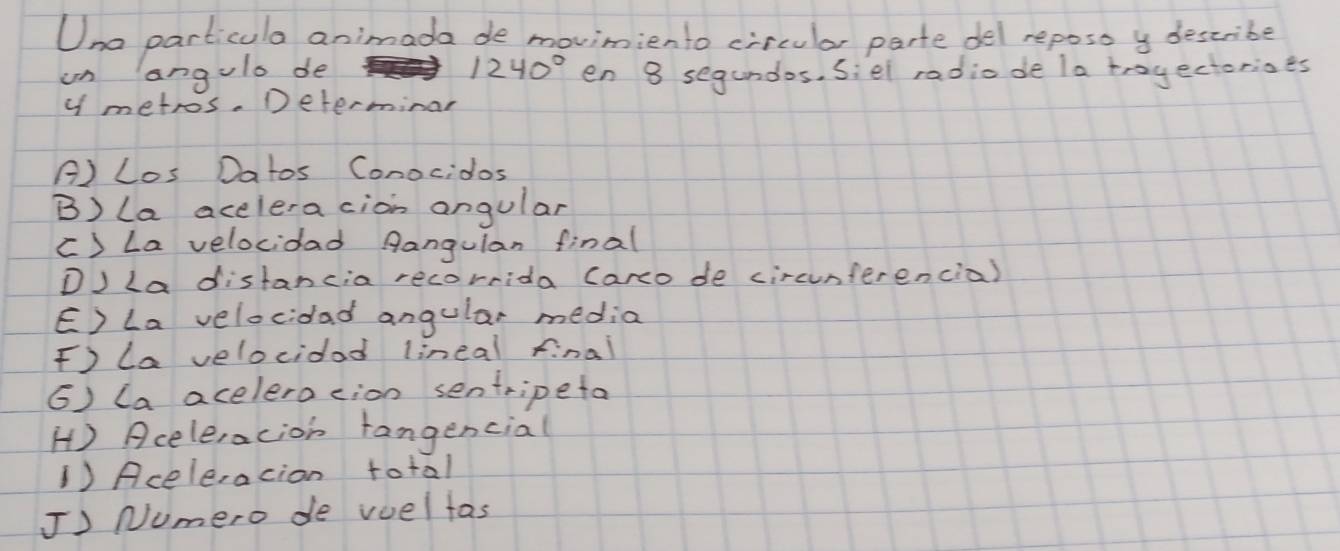 Una particula animada de movimiento circular parte del reposo y describe
un angulo de 1240° en 8 segundos. Si el radio de la trayectoria es
4 metros. Determinar
A) Los Datos Conocidos
B) La aceleracion angular
C) La velocidad Aangulan final
D) La distancia recorrida (arco de circunferencia)
E) La velocidad angular media
F) La velocidad lineal final
G) La aceleracion sentripeta
H) Aceleracion tangencial
I) Aceleracion total
J) Numero de vueltas